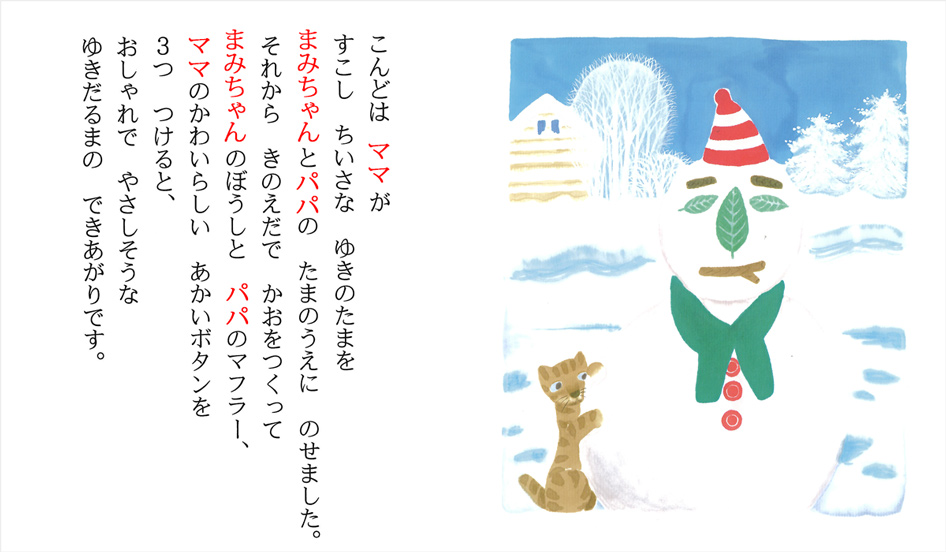 こんどは ママが
すこし ちいさな ゆきのたまを
まみちゃんとパパの たまのうえに のせました。
それから きのえだで かおをつくって
まみちゃんのぼうしと パパのマフラー、
ママのかわいらしい あかいボタンを
3つ つけると、
おしゃれで やさしそうな
ゆきだるまの できあがりです。